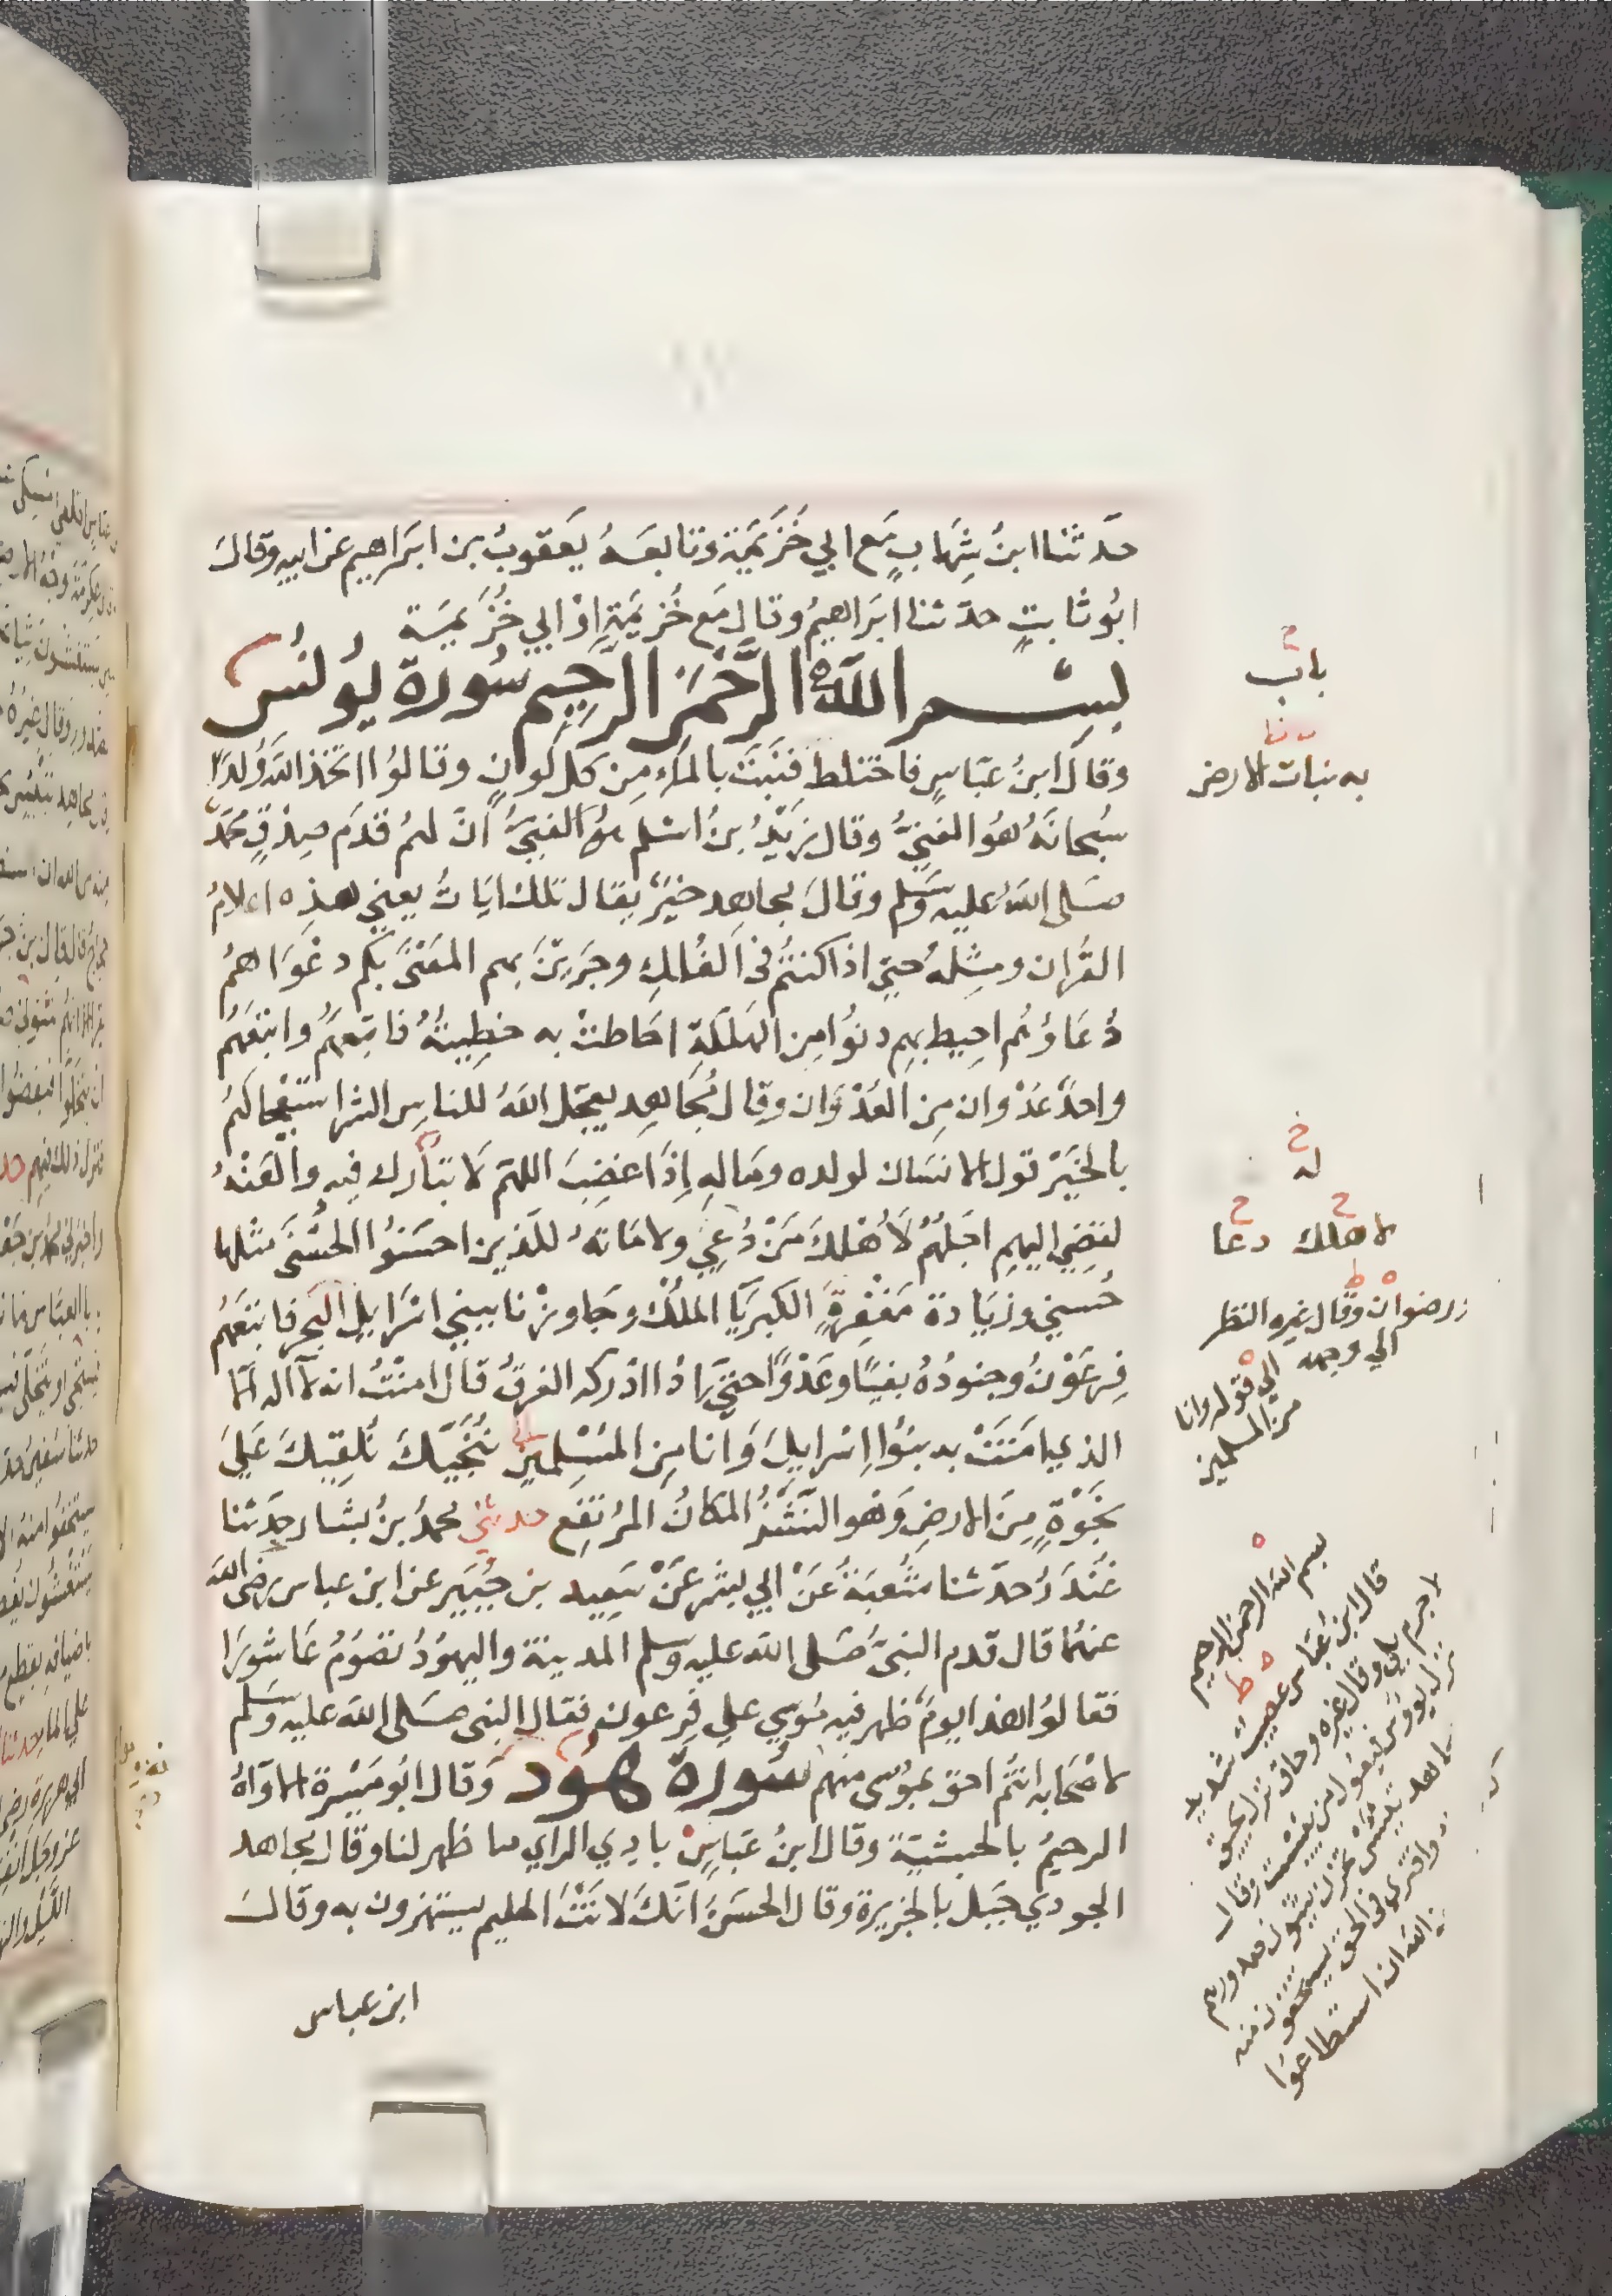 حدثنا ابنُ شِهَابٍ مَع ابي خُزَيمَة وتابعَهُ يَعقوبُ بن ابَراهيم عن ابيه وقالَ
ابُو ثابتٍ حدثنا ابَراهيمُ وقال مَع خُزيمَة اوْ ابي خُزَيمَة
بسْم اللَّه الرَّحْمَن الرَّحِيم سُورة يُونُس
وقالَ ابنُ عبَاسٍ فاختلط فنَبتَ بالماء مِن كل لَونٍ وقالوُا اتخذ الله وَلدًا
سُبحانَهُ هُو الغنِيُّ وقال زيْدُ بنُ اسْلم انَّ لهُم قدَم صِدْقٍ محمَّد
صَلى اللهُ عليه وسَلم وقالَ مجاهِد خيْرٌ يقال تلك ايَاتُ يعنِي هذِه اعلامُ
القُران ومثِلهُ حتي اذا كنتُم فى الفُلكِ وجَرَيْنَ بهم المعْنَى بكم دعْوَاهمُ
دُعَاؤهُم احِيط بهِم دنوُا مِن الهلكةِ احَاطتْ به خطِيئتُهُ فاتبعهُم وَاتبعَهُم
واحدٌ عَدْوان مِن العُدْوَان وقالَ مُجَاهِد يعجّل اللهُ للناسِ الشر استعْجالهُم
بالخيَرْ قول الانسَان لولده ومَالهِ اِذا غضِبَ اللهم لا تبَارك فِيه والعَنْهُ
لقضِي اليهِم اجَلهُمْ لأهْلكَ مَنْ دُعِيَ ولامَاتهُ للَّذين احسَنوُا الحُسْنَى مثلها
حُسني وزيَادة مَغْفِرةٍ الكبريَآ الملْكُ وجَاوزْنا ببني اسْرايل البَحر فاتبَعهُم
فِرعَوْنُ وجنودُهُ بغيًا وعَدْوًا حتيّ اِذا ادْركه الغرقُ قال امنْتُ انه لآ اله الا
الذي امَنَتْ به بنوُا اِسْرايلَ وَانا مِن المسْلِمينَ نُنَجِّيكَ نُلقِيكَ عَليَ
نَجْوَةٍ مِنَ الارضِ وَهُو النَّشْزُ المكانُ المرُتفِع حدثني محمدُ بنُ بشار حدَثنا
غُندَرٌ حدّثنا شعْبَةُ عَنْ ابي بشر عَنْ سَعِيد بن جُبَير عن ابن عباس رضى الله
عنهما قال قدم النبىُ صَلى الله عليه وسلم المدينة واليهوُدُ تصَوُمُ عَاشورَا
فقالوُا هذا يومٌ ظهر فيه مُوسي علي فِرعون فقال النبى صَلى الله عليه وسَلم
لاصْحَابه انتُم احق بموُسى منهم سُورة هُود وَقال ابُو ميْسَرة الاوَّاهُ
الرحيمُ بالحبشيَّة وقال ابنُ عبَاسٍ بادِي الرأي ما ظهر لنا وقال مجاهد
الجودي جَبل بالجزيرة وقال الحسَنُ انّكَ لانَتَ الحليم يستهزون به وقالَ
ابن عباس
باب
به نبات الارض
له
لاهلك دعا
ورضوان وقال غيره النظر
الي وجهه
الي قوله وانا
من المسلمين
بسم الله الرحمن الرحيم
قال ابن عباس عصيب شديد
لا جرم بلي وقال غيره وحاق نزل يحيق
ينزل يؤوس فعول من يئست وقال
مجاهد تبتئس تحزن يثنون صدورهم
وافترى فى الحق ليستخفوا منه
من الله ان استطاعوا